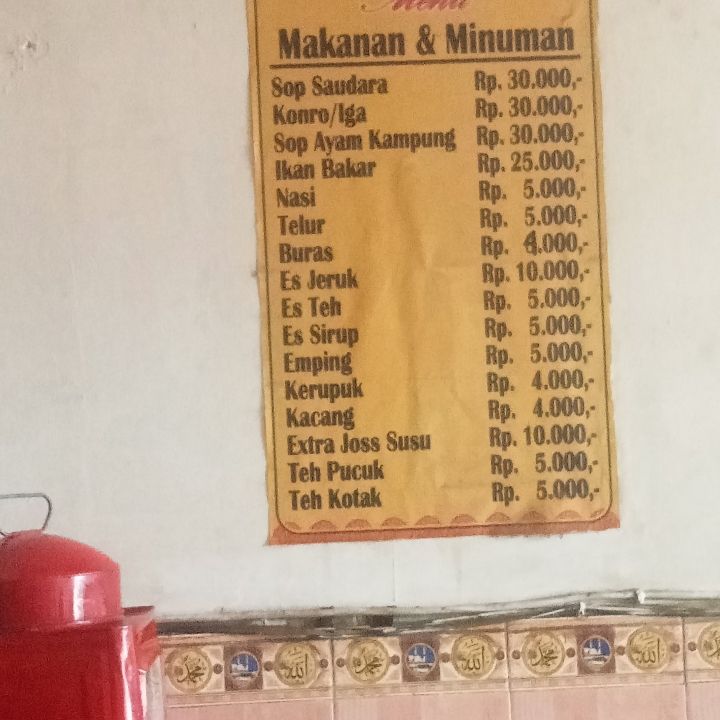 Menu
Makanan & Minuman
Sop Saudara Rp. 30.000,-
Konro/Iga Rp. 30.000,-
Sop Ayam Kampung Rp. 30.000,-
Ikan Bakar Rp. 25.000,-
Nasi Rp. 5.000,-
Telur Rp. 5.000,-
Buras Rp. 4.000,-
Es Jeruk Rp. 10.000,-
Es Teh Rp. 5.000,-
Es Sirup Rp. 5.000,-
Emping Rp. 5.000,-
Kerupuk Rp. 4.000,-
Kacang Rp. 4.000,-
Extra Joss Susu Rp. 10.000,-
Teh Pucuk Rp. 5.000,-
Teh Kotak Rp. 5.000,-
محمد الله محمد الله محمد الله